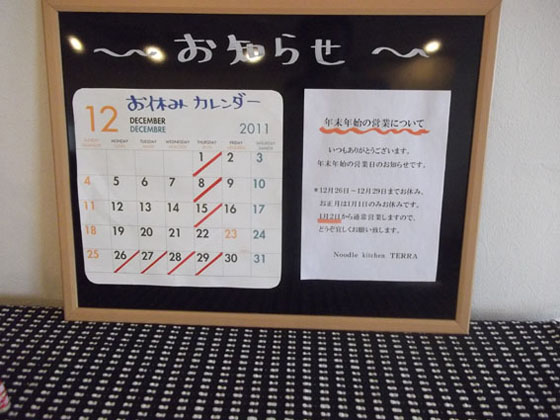 お知らせ
お休みカレンダー
12 DECEMBER
DÉCEMBRE
2011
SUNDAY MONDAY TUESDAY WEDNESDAY THURSDAY FRIDAY SATURDAY
1 2 3
4 5 6 7 8 9 10
11 12 13 14 15 16 17
18 19 20 21 22 23 24
25 26 27 28 29 30 31
年末年始の営業について
いつもありがとうございます。
年末年始の営業日のお知らせです。
*12月26日～12月29日までお休み。
お正月は1月1日のみお休みです。
1月2日から通常営業しますので、
どうぞ宜しくお願い致します。
Noodle kitchen TERRA